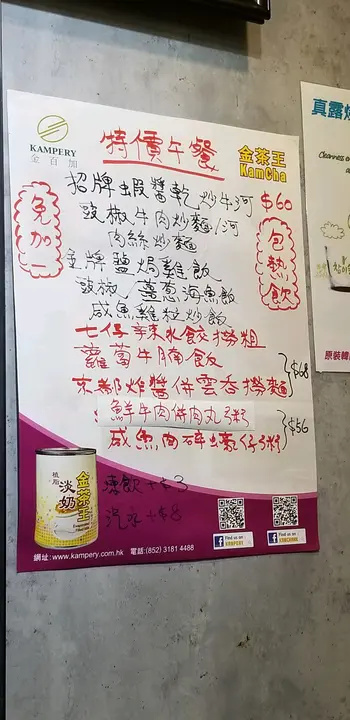 KAMPERY
金百加
特價午餐
金茶王
KamCha
免加一
招牌蝦醬乾炒牛河 $60
豉椒牛肉炒麵/河
肉絲炒麵
金牌鹽焗雞飯
豉椒/薑蔥海魚飯
咸魚雞粒炒飯
包熱飲
七仔辣水餃撈粗
蘿蔔牛腩飯
京都炸醬併雲吞撈麵
$68
鮮牛肉併肉丸粥
咸魚肉碎蠔仔粥
$56
凍飲+$3
汽水+$8
植脂
淡奶
金茶王
Find us on
KAMPERY
Find us on
網址:www.kampery.com.hk 電話:(852) 3181 4488
真露
Chamness
原裝韓